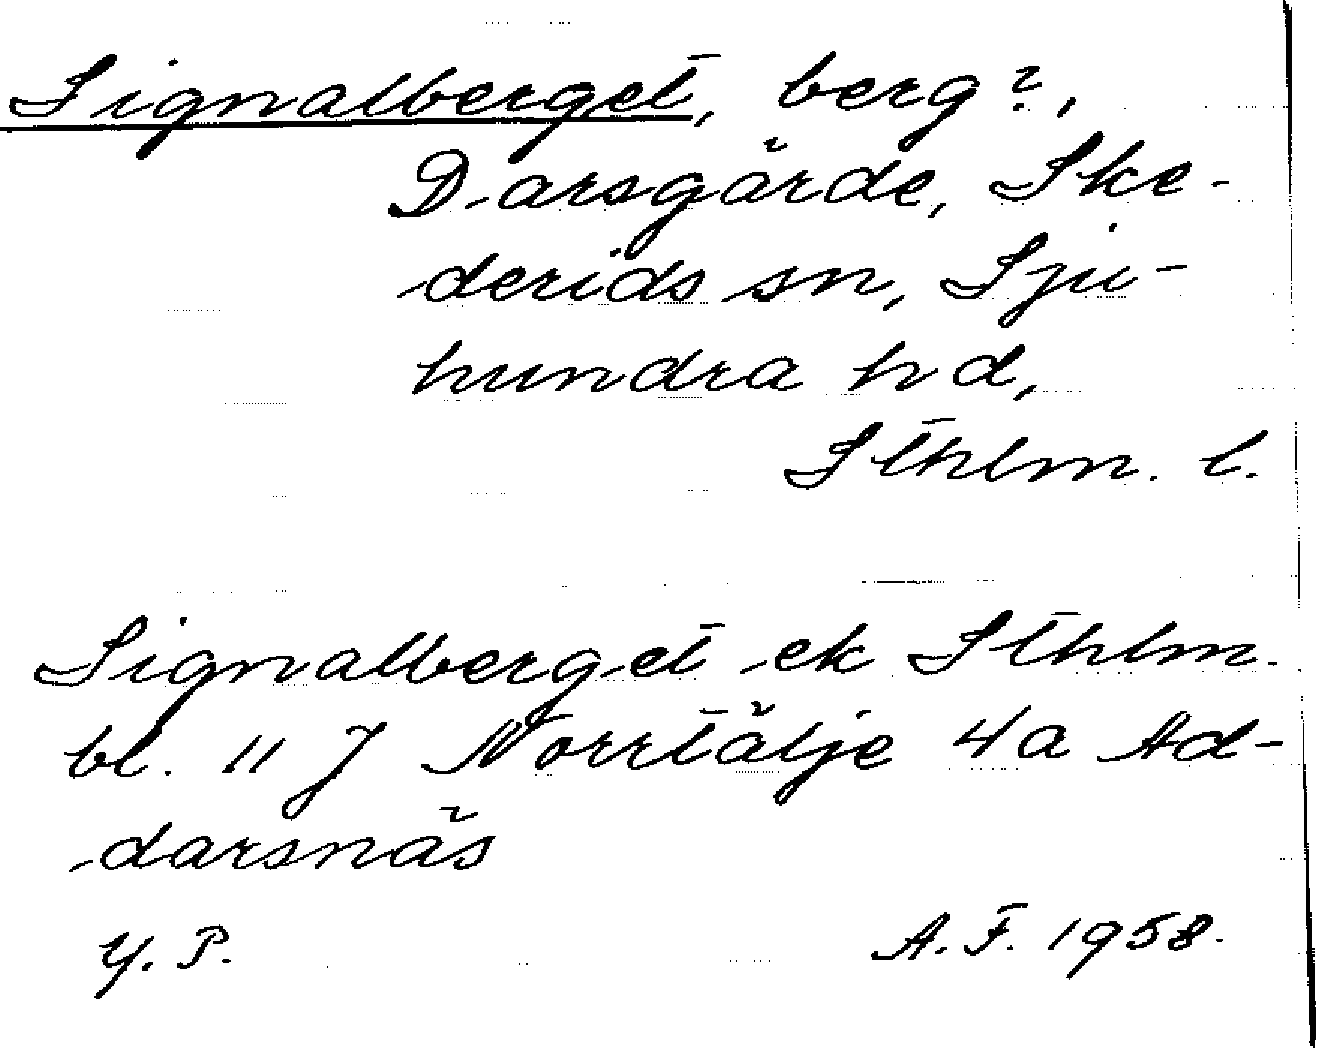 Signalberget, berg?,
Darsgärde, Ske-
derids sn, Sju-
hundra hd,
Sthlm. l.
Signalberget ek Sthlm.
bl. 11 J Norrtälje 4a Ad-
darsnäs
Y. P. A. F. 1958.